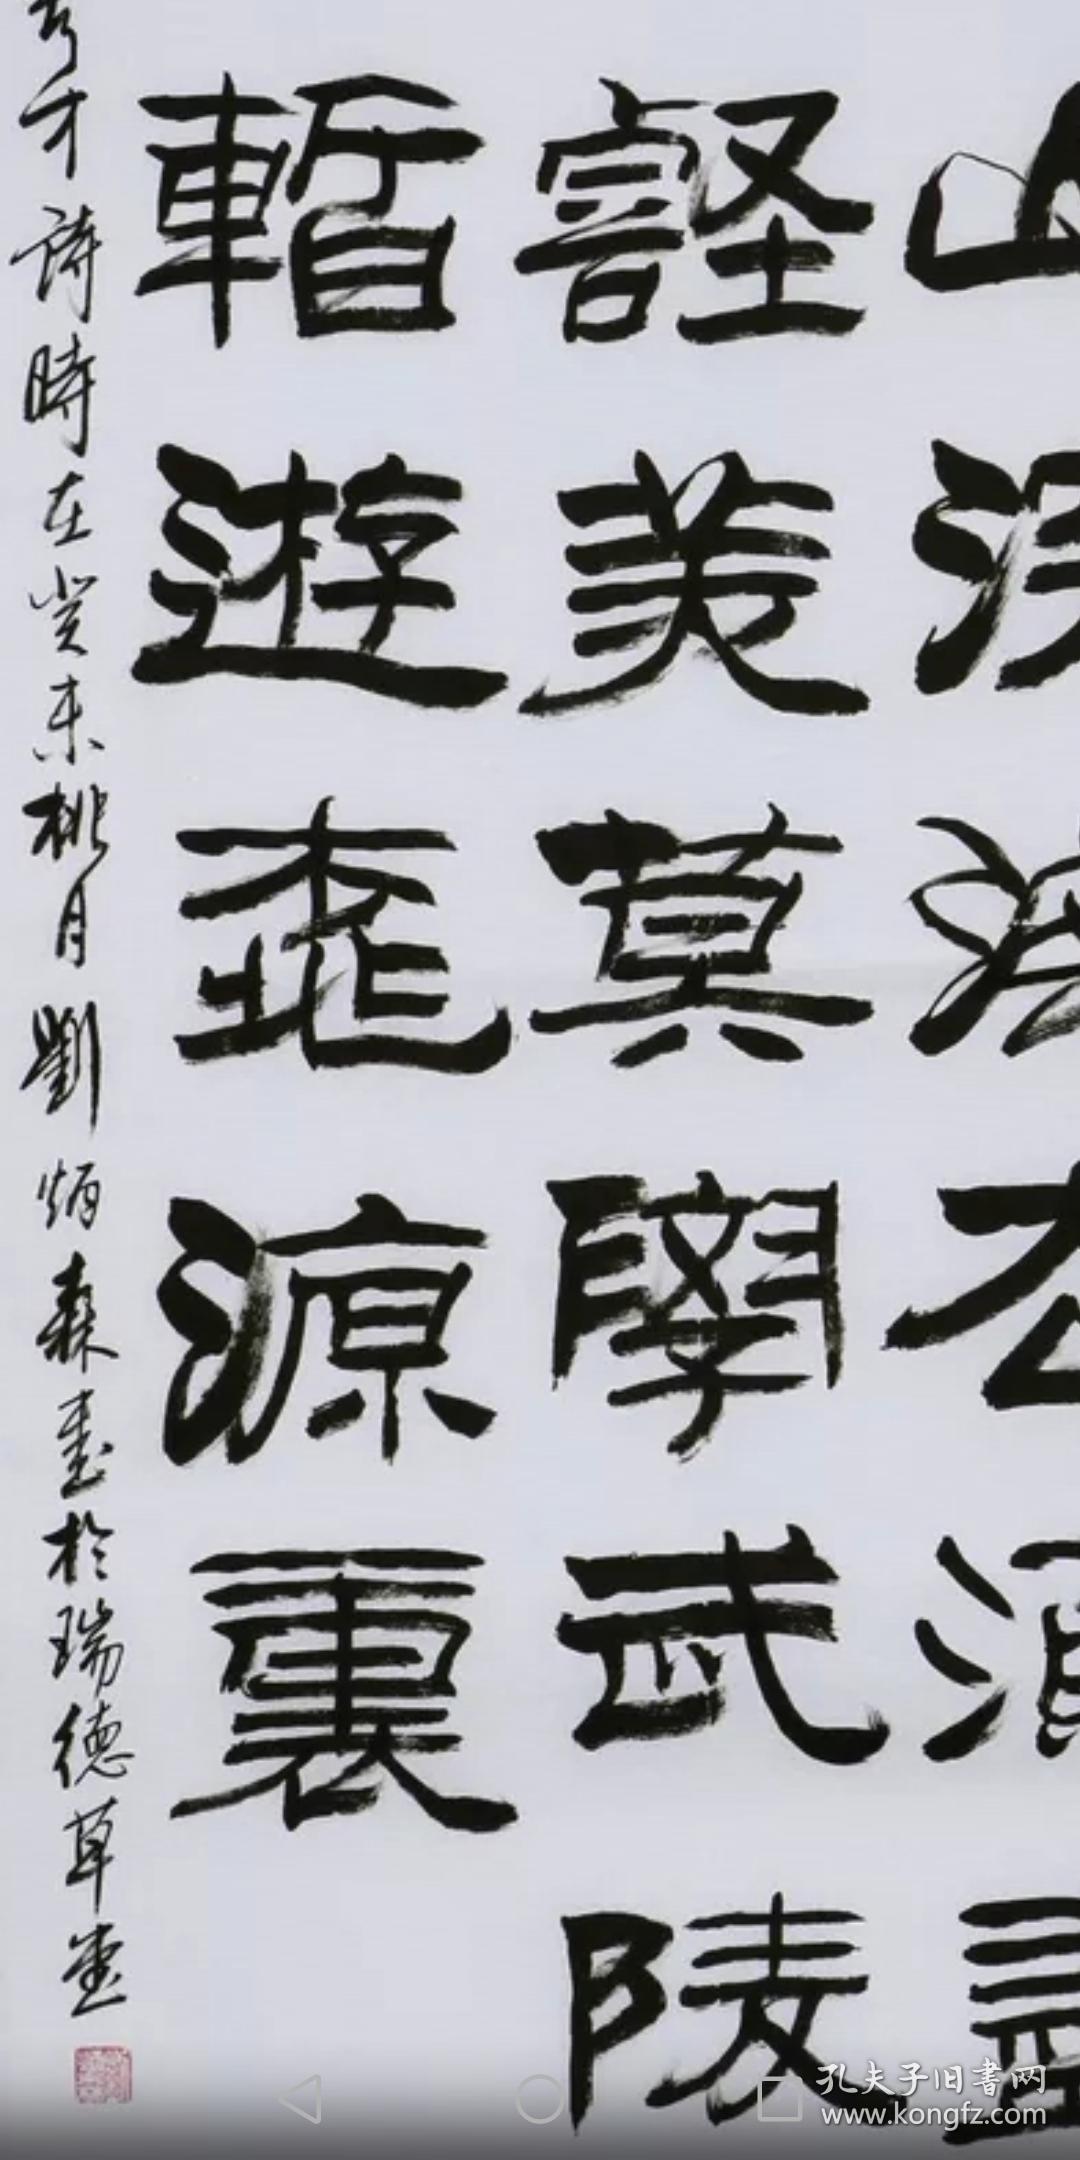 山
壑美莫學武陵
暫遊桃源裏
才詩時在癸未桃月劉炳森書於瑞德草堂
孔夫子旧書网
www.kongfz.com